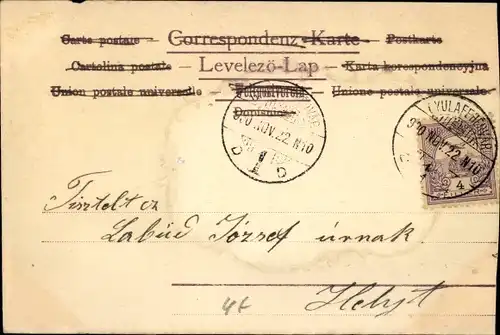 Carte postale – Correspondenz-Karte – Postkarte
Cartolina postale – Levelező-Lap – Karta korespondencyjna
Union postale universelle – Weltpostverein – Unione postale universale
Dopisnice
GYULAFEHÉRVÁR
900 NOV. 22 N10
GYULAFEHÉRVÁR
900 NOV. 22 N10
4
Tisztelt cz
Labúd József úrnak
Helyt
4f